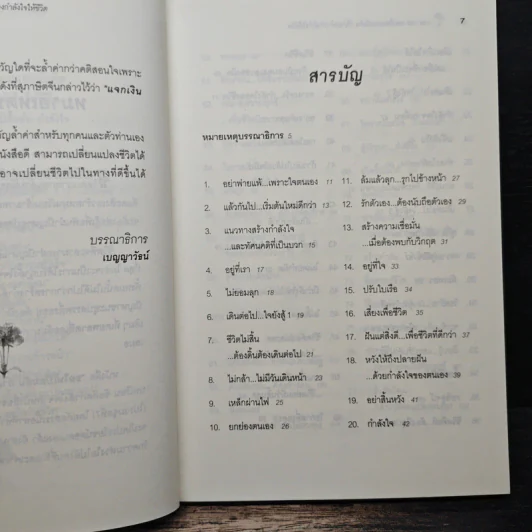 งกำลังใจให้ชีวิต
วัญใดที่จะล้ำค่ากว่าคติสอนใจเพราะ
ดังที่สุภาษิตจีนกล่าวไว้ว่า "แจกเงิน
วัญล้ำค่าสำหรับทุกคนและตัวท่านเอง
หนังสือดี สามารถเปลี่ยนแปลงชีวิตได้
อาจเปลี่ยนชีวิตไปในทางที่ดีขึ้นได้
บรรณาธิการ
เบญญาวัธน์
7
สารบัญ
หมายเหตุบรรณาธิการ 5
1. อย่าพ่ายแพ้...เพราะใจตนเอง 11
2. แล้วกันไป...เริ่มต้นใหม่ดีกว่า 13
3. แนวทางสร้างกำลังใจ
...และทัศนคติที่เป็นบวก 15
4. อยู่ที่เรา 17
5. ไม่ยอมลุก 18
6. เดินต่อไป...ใจยังสู้ 1
7. ชีวิตไม่สิ้น
...ต้องดิ้นต้องเดินต่อไป 21
8. ไม่กล้า...ไม่มีวันเดินหน้า 23
9. เหล็กผ่านไฟ 25
10. ยกย่องตนเอง 26
11. ล้มแล้วลุก...รุกไปข้างหน้า 27
12. รักตัวเอง...ต้องนับถือตัวเอง 29
13. สร้างความเชื่อมั่น
...เมื่อต้องพบกับวิกฤต 31
14. อยู่ที่ใจ 33
15. ปรับใบเรือ 34
16. เสี่ยงเพื่อชีวิต 35
17. ฝันแต่สิ่งดี...เพื่อชีวิตที่ดีกว่า 37
18. หวังให้ถึงปลายฝัน
...ด้วยกำลังใจของตนเอง 39
19. อย่าสิ้นหวัง 41
20. กำลังใจ 42